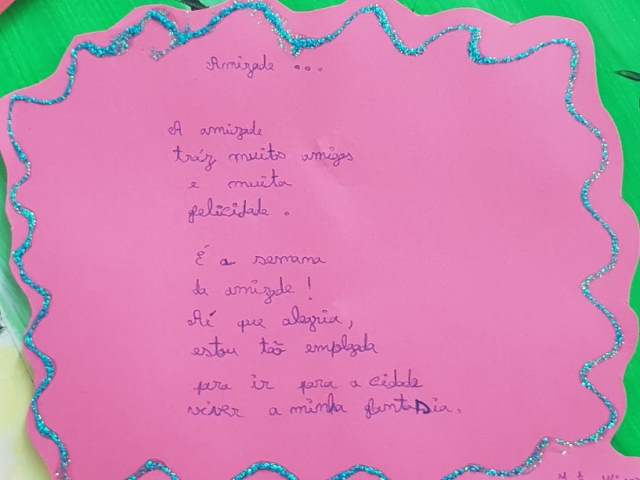 Amizade ...
A amizade
tráz muitos amigos
e muita
felicidade.
É a semana
da amizade!
Aí que alegria,
estou tão
para ir para a cidade
viver a minha fantasia.